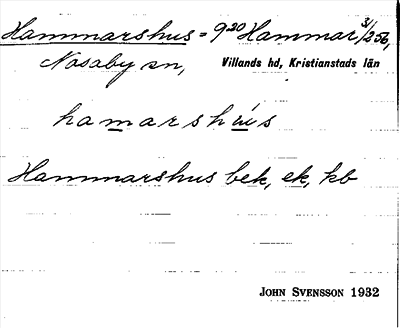 Hammarshus = 9²⁰ Hammar 3/256,
Nosaby sn, Villands hd, Kristianstads län
hamarshús
Hammarshus bek, ek, kb
JOHN SVENSSON 1932